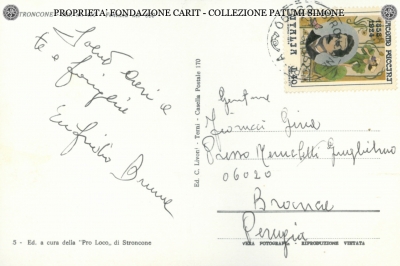 PROPRIETA' FONDAZIONE CARIT - COLLEZIONE PATUMI SIMONE
STRONCONE
GIACOMO PUCCINI
1858
1924
ITALIA
Saluti cari a
te e famiglia
Bruna
Ed. C. Livori - Terni - Casella Postale 170
Gentma
Gina
Presso Menichetti Guglielmo
06020
Branca
Perugia
5 - Ed. a cura della "Pro Loco„ di Stroncone
VERA FOTOGRAFIA - RIPRODUZIONE VIETATA